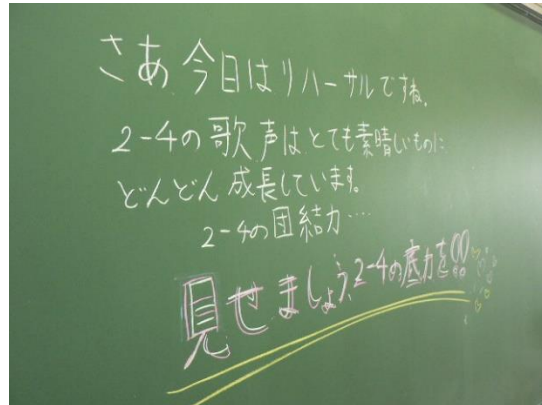 さあ今日はリハーサルですね。
2-4の歌声はとても素晴しいものに
どんどん成長しています。
2-4の団結力‥‥
見せましょう2-4の底力を!!